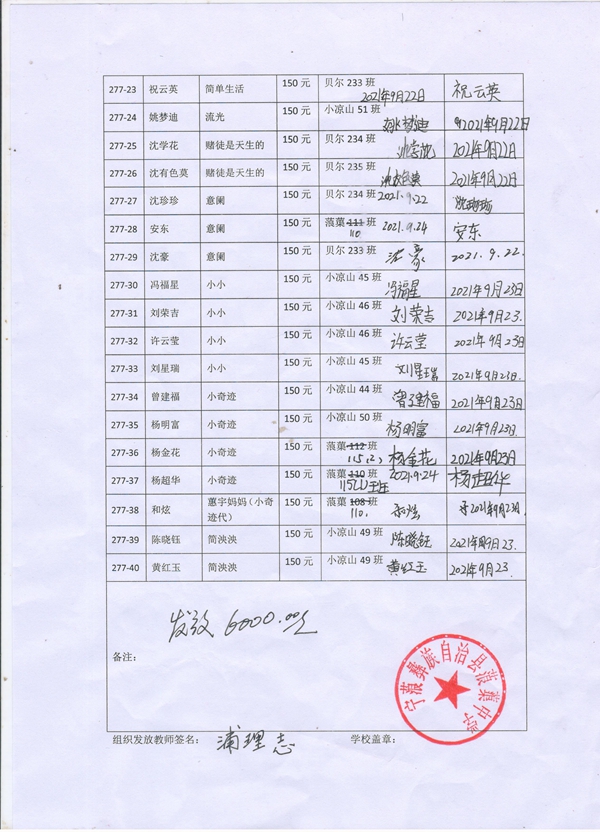 277-23 祝云英 简单生活 150 元 贝尔 233 班 2021年9月22日 祝云英
277-24 姚梦迪 流光 150 元 小凉山 51 班 姚梦迪 2021年9月22日
277-25 沈学花 赌徒是天生的 150 元 贝尔 234 班 2021年9月22日
277-26 沈有色莫 赌徒是天生的 150 元 贝尔 235 班 沈有色莫 2021年9月22日
277-27 沈珍珍 意阑 150 元 贝尔 234 班 2021.9.22 沈珍珍
277-28 安东 意阑 150 元 蒗蕖 111 班 110 2021.9.24 安东
277-29 沈豪 意阑 150 元 贝尔 233 班 沈豪 2021.9.22.
277-30 冯福星 小小 150 元 小凉山 45 班 冯福星 2021年9月23日
277-31 刘荣吉 小小 150 元 小凉山 46 班 刘荣吉 2021年9月23.
277-32 许云莹 小小 150 元 小凉山 46 班 许云莹 2021年9月23日
277-33 刘星瑞 小小 150 元 小凉山 45 班 刘星瑞 2021年9月23日.
277-34 曾建福 小奇迹 150 元 小凉山 44 班 曾建福 2021年9月23日
277-35 杨明富 小奇迹 150 元 小凉山 50 班 杨明富 2021年9月23日.
277-36 杨金花 小奇迹 150 元 蒗蕖 112 班 115(2) 杨金花 2021年9月23日
277-37 杨超华 小奇迹 150 元 蒗蕖 110 班 2021.9.24 杨超华
277-38 和炫 蕙宇妈妈（小奇迹代） 150 元 蒗蕖 108 班 110. 和炫 2021年9月23日.
277-39 陈晓钰 简泱泱 150 元 小凉山 49 班 陈晓钰 2021年9月23.
277-40 黄红玉 简泱泱 150 元 小凉山 49 班 黄红玉 2021年9月23
发放 6000.00元
备注：
宁蒗彝族自治县蒗蕖中学
组织发放教师签名： 浦理志 学校盖章：